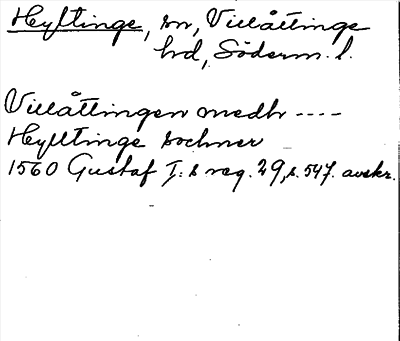 Hyltinge, sn, Villåttinge
hd, Söderm. l.
Villåttingen medh ----
Hylltinge sochner
1560 Gustaf I:s reg. 29, s. 547. avskr.